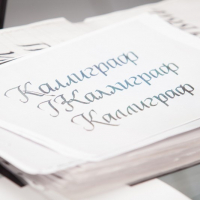 Каллиграф
Каллиграф
Каллиграф